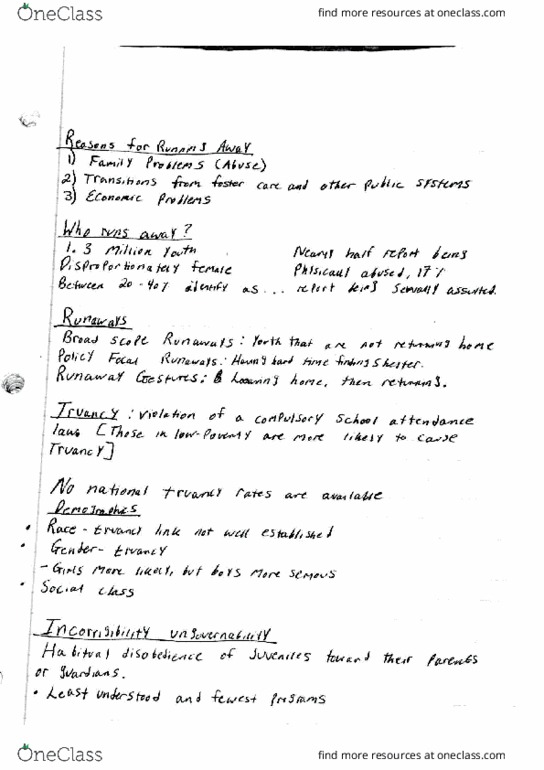 OneClass
find more resources at oneclass.com
Reasons for Running Away
1) Family Problems (Abuse)
2) Transitions from foster care and other Public systems
3) Economic Problems
Who runs away?
1.3 Million Youth
Nearly half report being
Disproportionately female
Phisicaul abused, 17%
Between 20-40% identify as...
report being sexually assulted.
Runaways
Broad scope Runaways: Youth that are not returning home
Policy Focal Runaways: Having hard time finding shelter.
Runaway Gestures: Leaving home, then returning.
Truancy: violation of a compulsory school attendance
laws [Those in low-Poverty are more likely to cause
Truancy]
No national truancy rates are available
Demographics
• Race - truancy link not well established
• Gender - truancy
- Girls more likely, but boys more serious
• Social class
Incorrigibility ungovernability
Habitual disobedience of Juveniles toward their Parents
or guardians.
• Least understood and fewest programs
OneClass
find more resources at oneclass.com